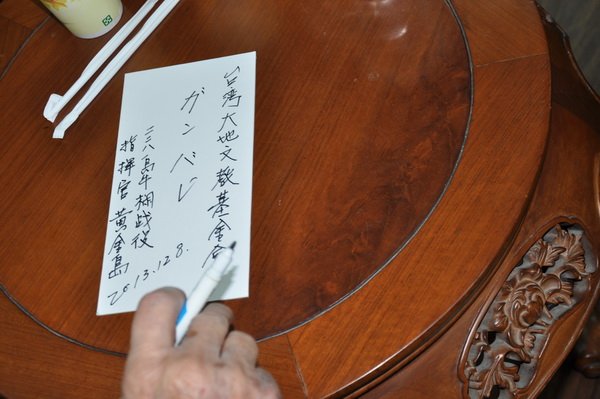 台湾大地文教基金会
ガンバレ
二二八烏牛欄战役
指揮官 黄金島
2013.12.8.